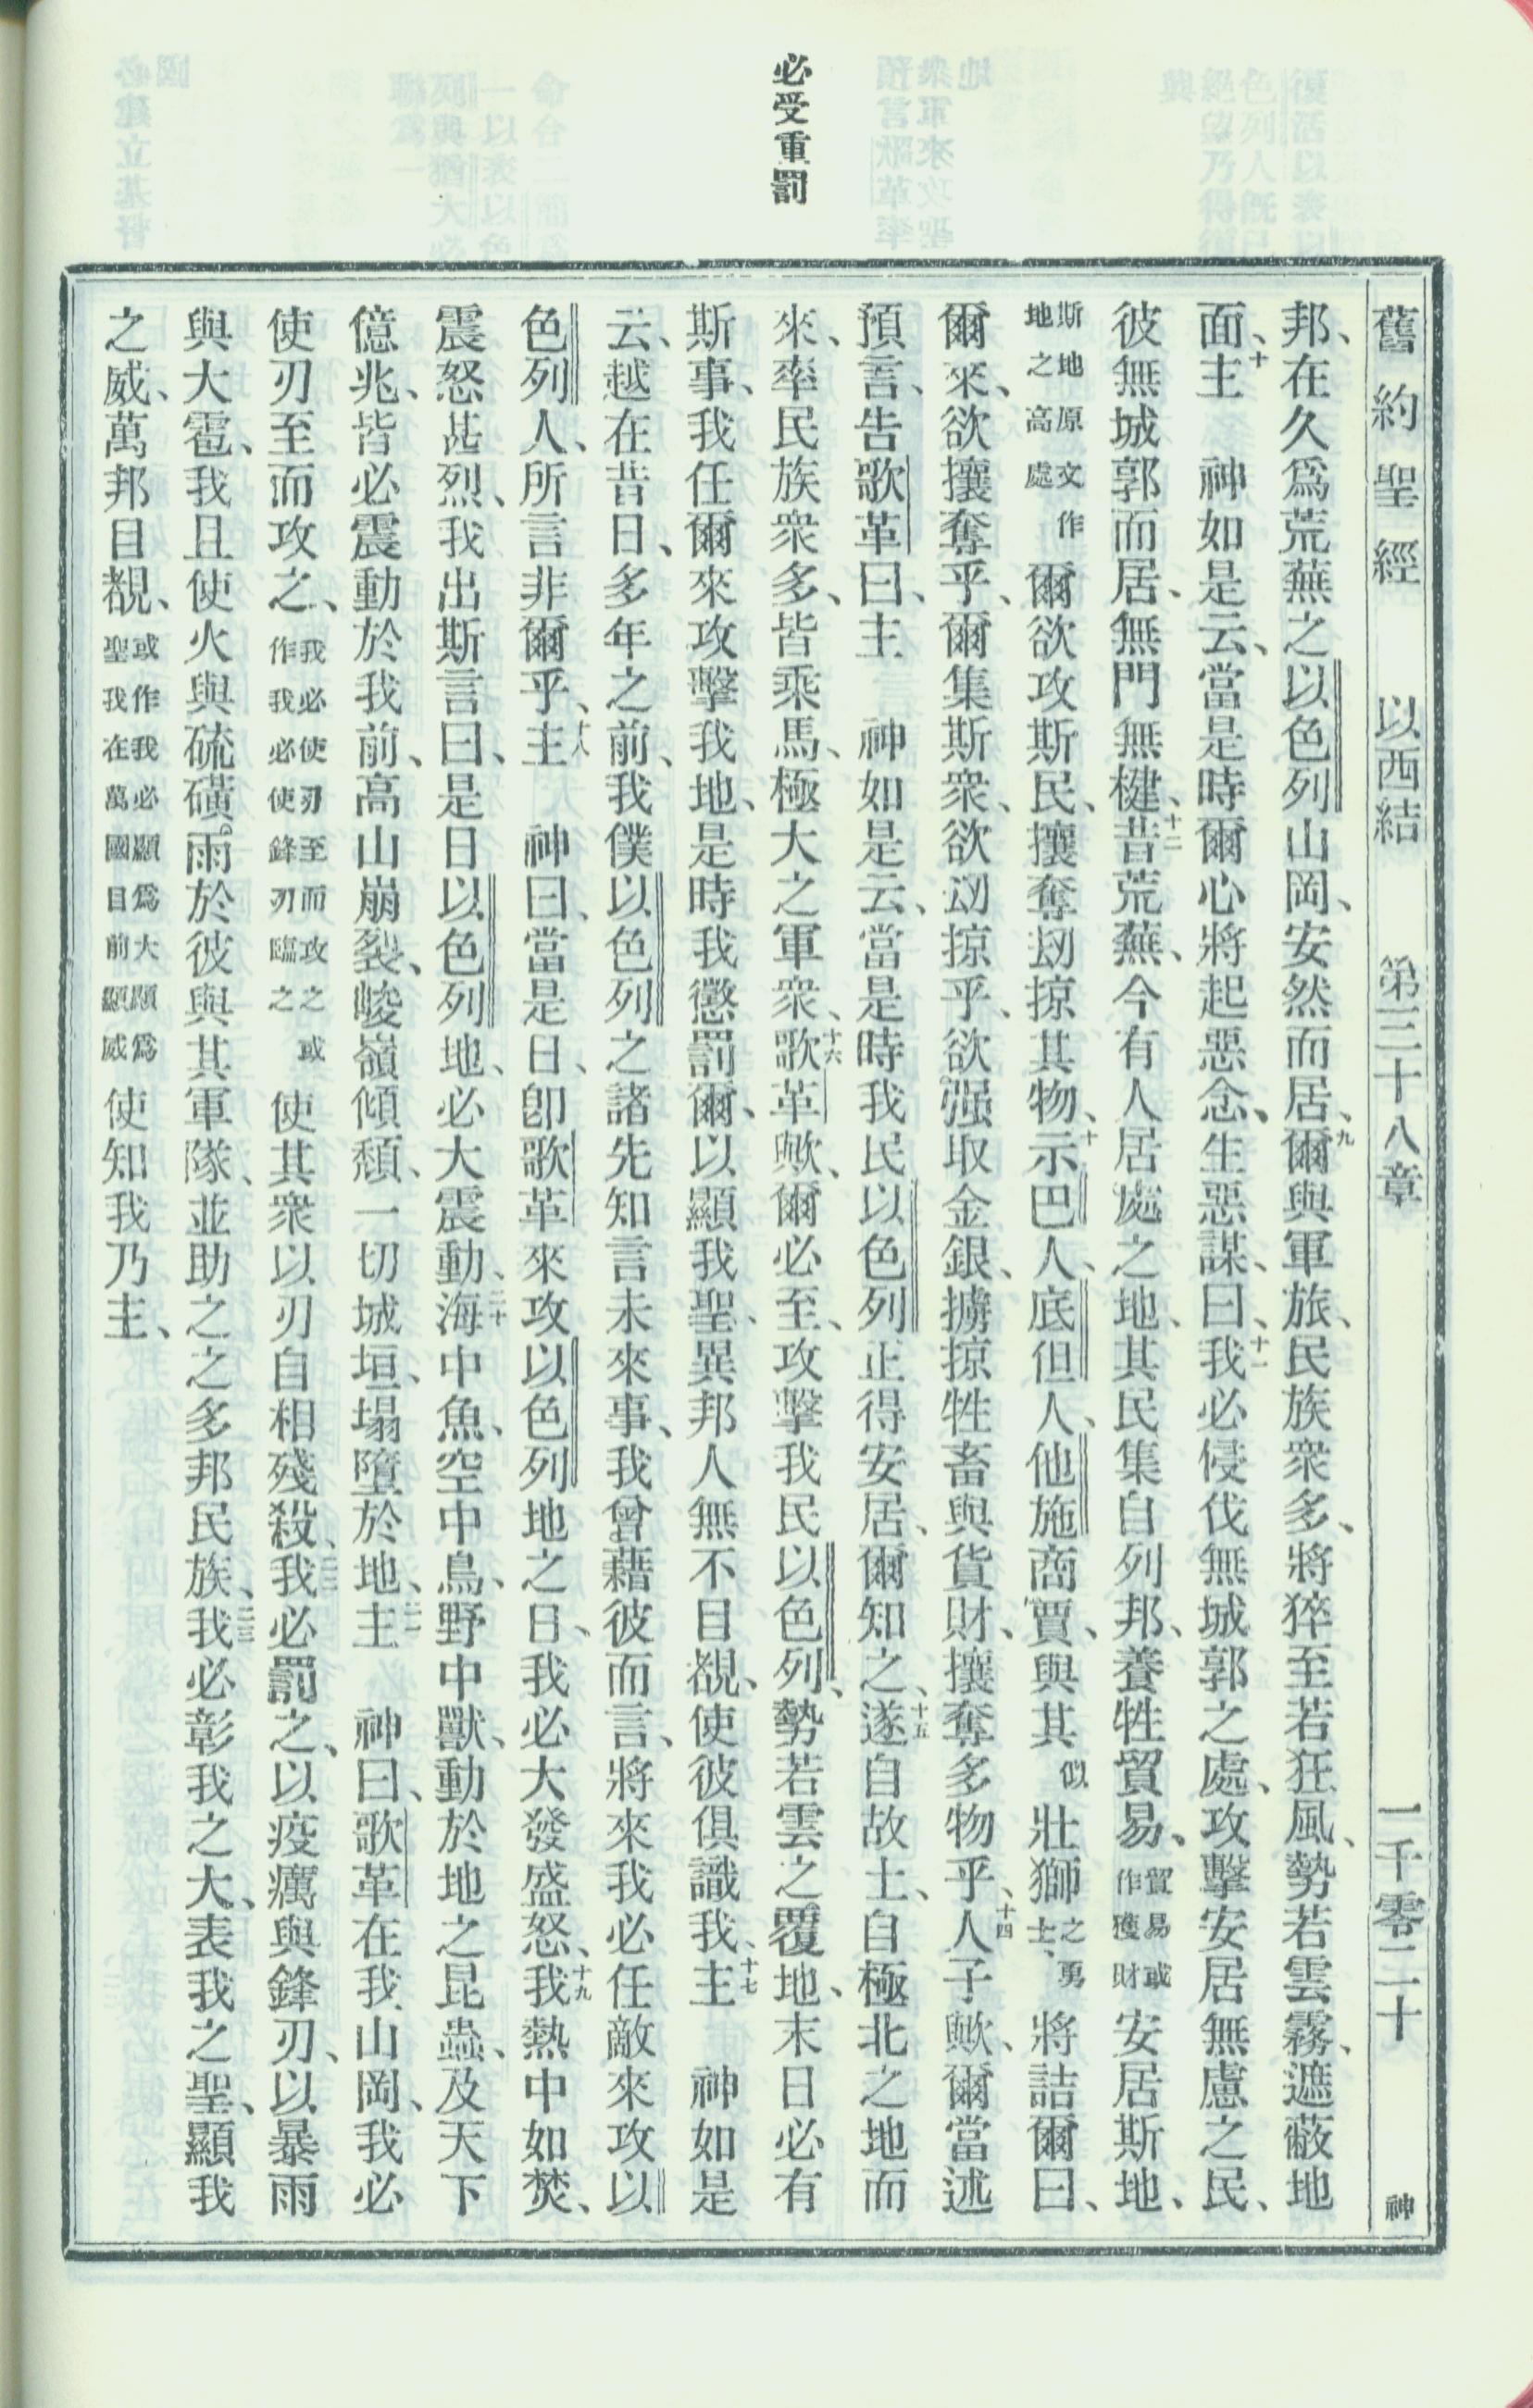 必受重罰
舊約聖經　以西結　第三十八章　一千零二十　神
邦、在久爲荒蕪之以色列山岡、安然而居、九爾與軍旅、民族衆多、將猝至若狂風、勢若雲霧、遮蔽地
面、十主　神如是云、當是時爾心將起惡念、生惡謀、曰、十一我必侵伐無城郭之處、攻擊安居無慮之民、
彼無城郭而居、無門無楗、十二昔荒蕪、今有人居處之地、其民集自列邦、養牲貿易、貿易或作獲財安居斯地、
斯地原文作地之高處爾欲攻斯民、攘奪刼掠其物、十示巴人、底但人、他施商賈、與其似壯獅之勇士、將詰爾曰、
爾來、欲攘奪乎、爾集斯衆、欲刼掠乎、欲强取金銀、擄掠牲畜與貨財、攘奪多物乎、十四人子歟、爾當述
預言、告歌革曰、主　神如是云、當是時我民以色列止得安居、爾知之、十五遂自故土、自極北之地而
來、率民族衆多、皆乘馬、極大之軍衆、十六歌革歟、爾必至、攻擊我民以色列、勢若雲之覆地、末日必有
斯事、我任爾來攻擊我地、是時我懲罰爾、以顯我聖、異邦人無不目覩、使彼俱識我、十七主　神如是
云、越在昔日、多年之前、我僕以色列之諸先知言未來事、我曾藉彼而言、將來我必任敵來攻以
色列人、所言非爾乎、十八主　神曰、當是日、卽歌革來攻以色列地之日、我必大發盛怒、十九我熱中如焚、
震怒甚烈、我出斯言曰、是日以色列地、必大震動、二十海中魚、空中鳥、野中獸、動於地之昆蟲、及天下
億兆、皆必震動於我前、高山崩裂、峻嶺傾頹、一切城垣、塌墮於地、二一主　神曰、歌革在我山岡、我必
使刃至而攻之、我必使刃至而攻之或作我必使鋒刃臨之使其衆以刃自相殘殺、二二我必罰之、以疫癘與鋒刃、以暴雨
與大雹、我且使火與硫磺雨於彼與其軍隊、並助之之多邦民族、二三我必彰我之大、表我之聖、顯我
之威、萬邦目覩、或作我必顯爲大顯爲聖我在萬國目前顯威使知我乃主、